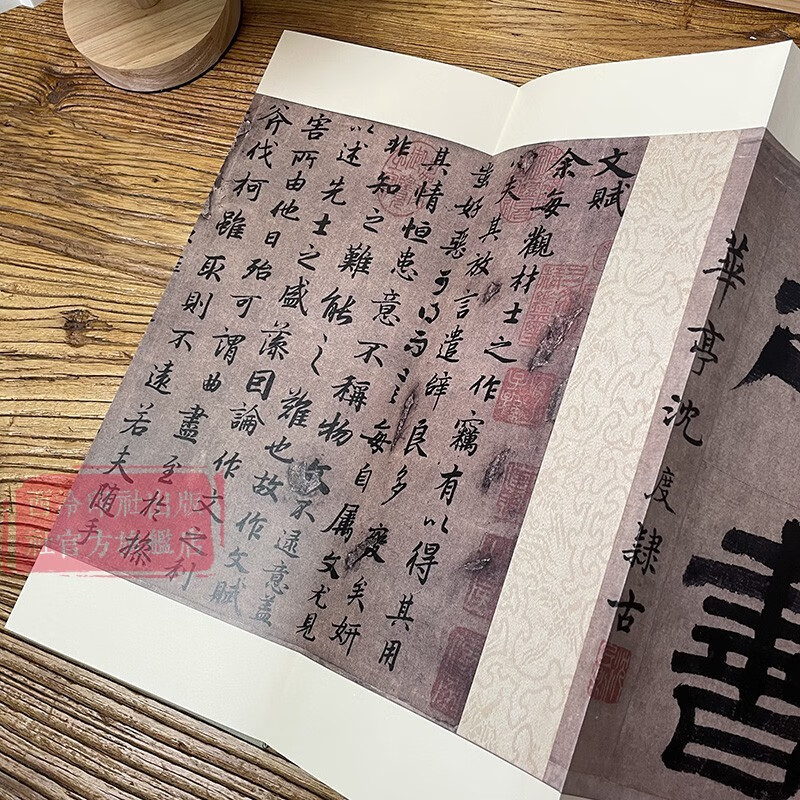 書
華亭沈度隸古
文賦
余每觀材士之作竊有以得其用
心夫其放言遣辭良多變矣妍
蚩好惡可得而言每自屬文尤見
其情恒患意不稱物文不逮意蓋
非知之難能之難也故作文賦
以述先士之盛藻因論作文之利
害所由他日殆可謂曲盡至於操
斧伐柯雖取則不遠若夫隨手
西泠印社出版
社官方旗艦店